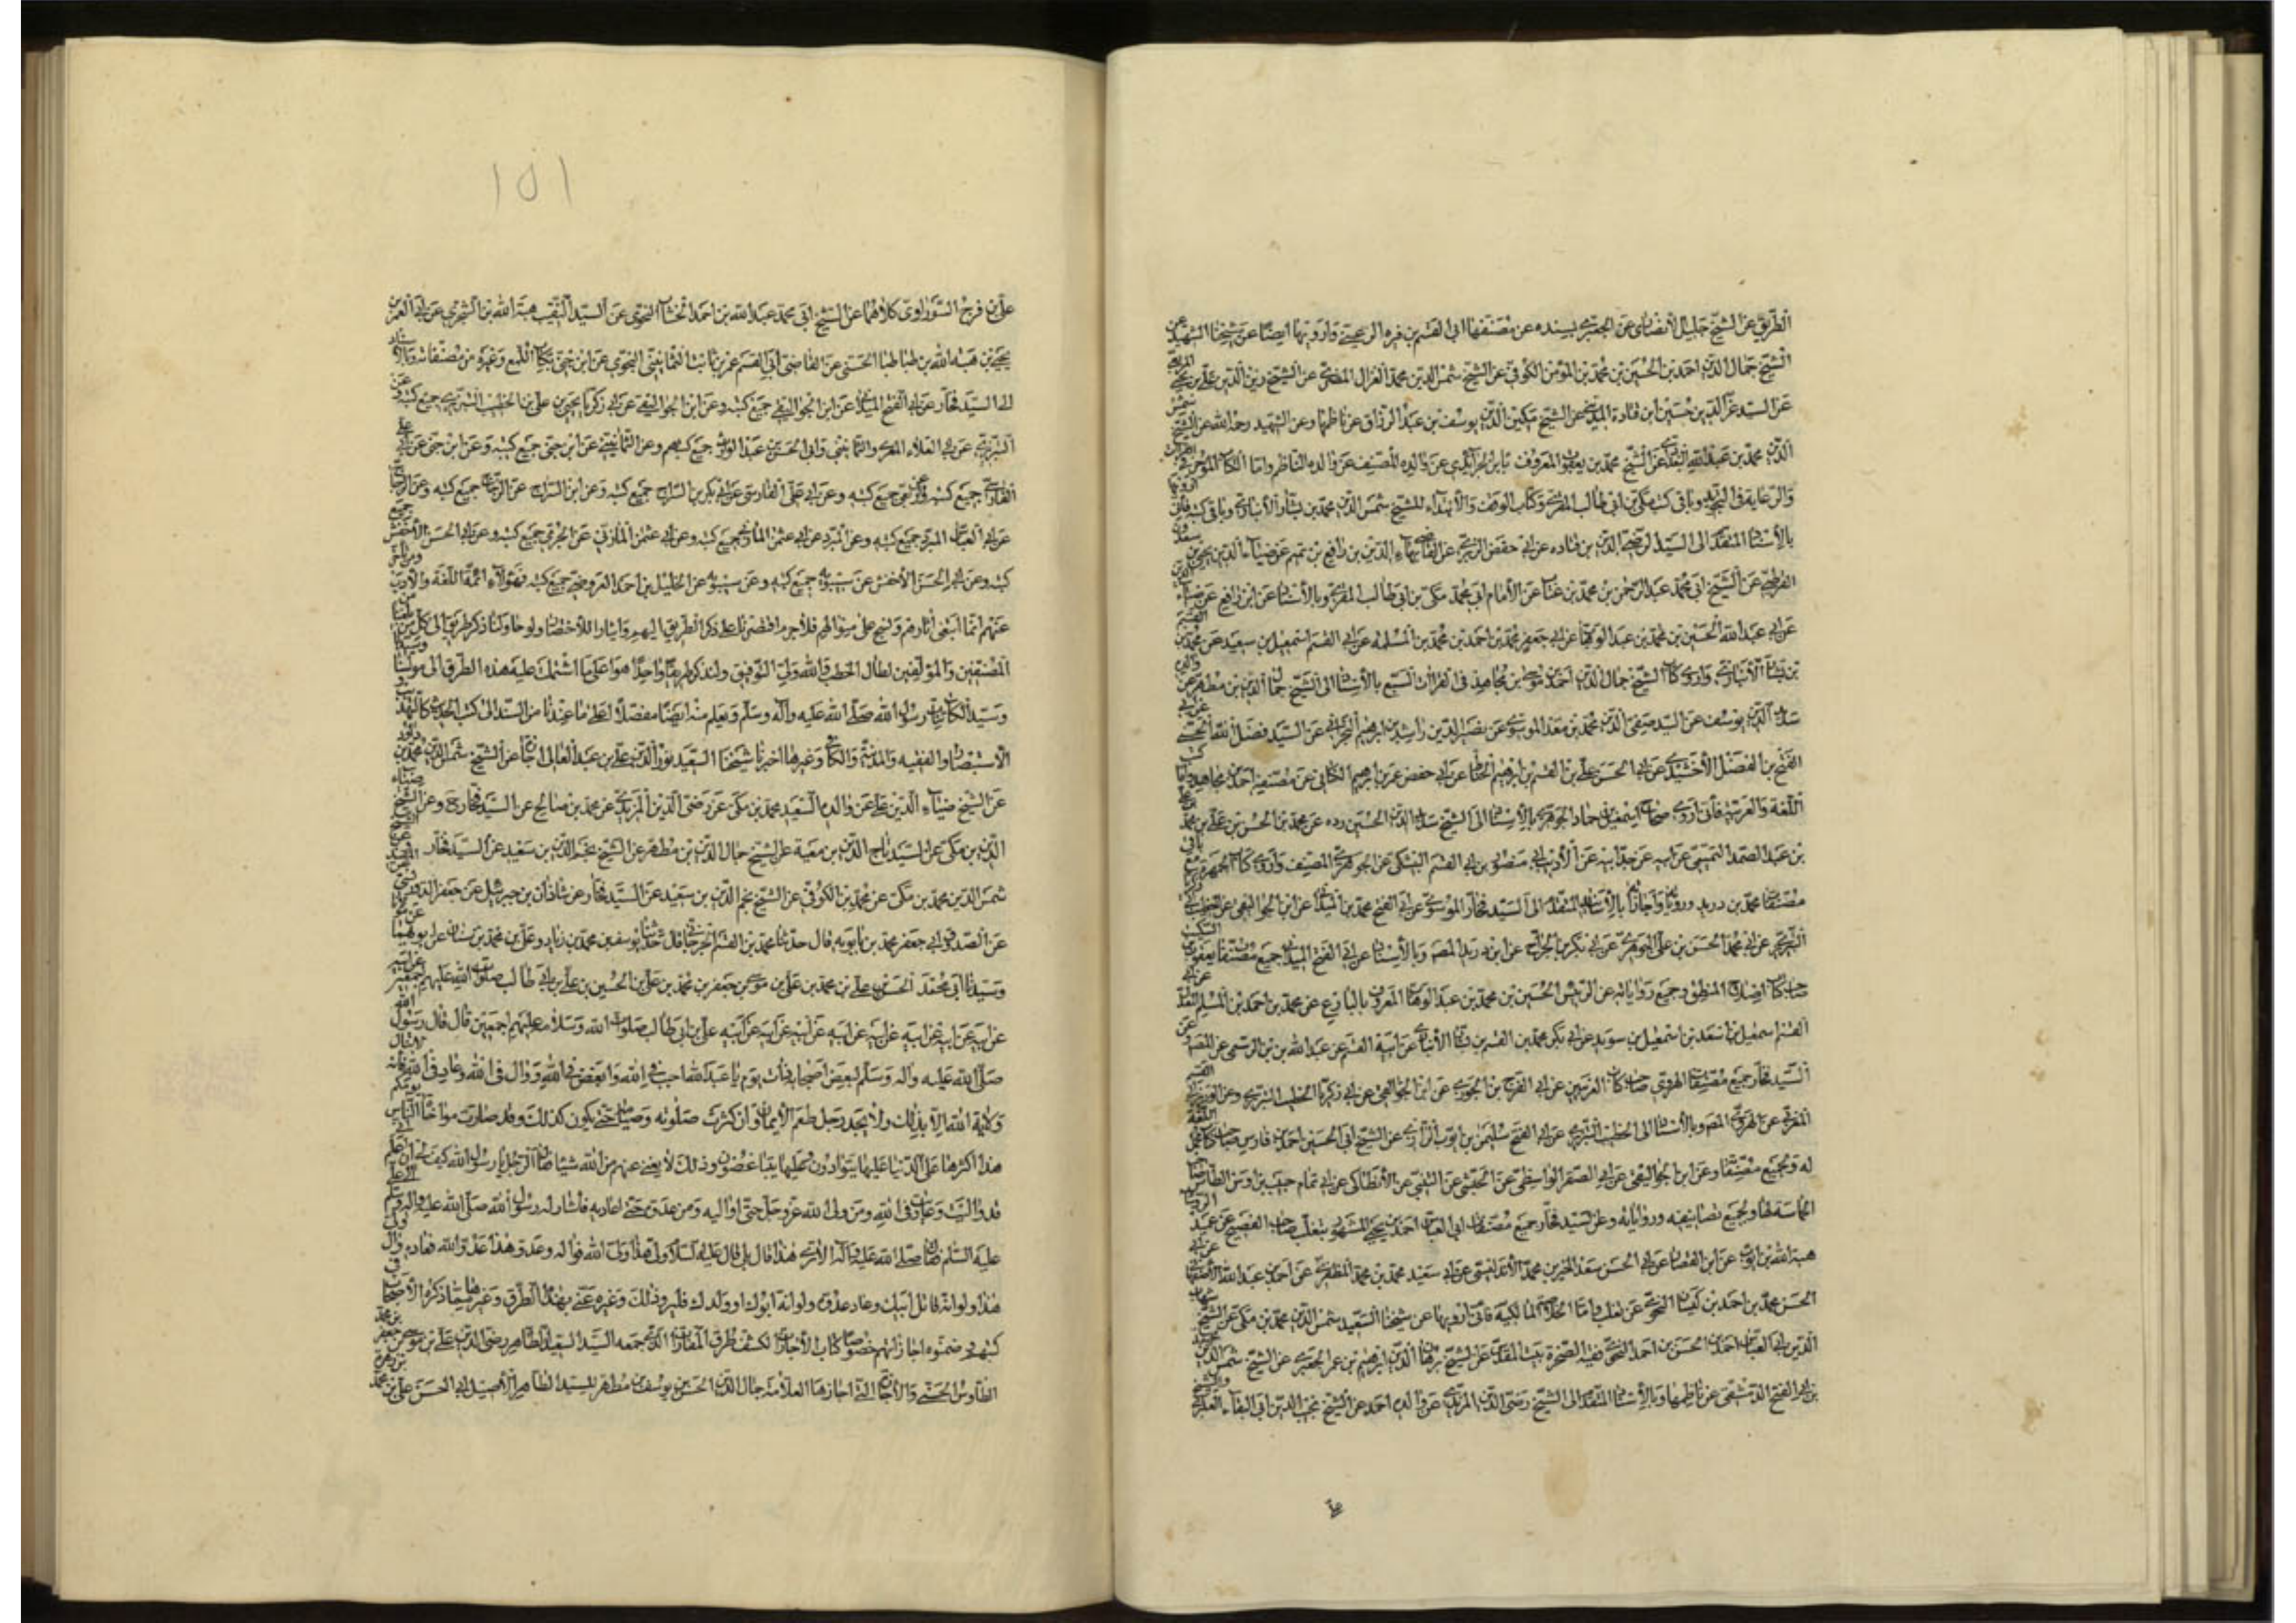 الطريق عن الشيخ جليل الأنصاري عن الجعبري بسنده عن مصنفها ابي القسم بن فره الرعيني وارويها ايضا عن شيخنا الشهيد عن
الشيخ جمال الدين احمد بن الحسين بن محمد بن المؤمن الكوفي عن الشيخ شمس الدين محمد الغزال المضري عن الشيخ زين الدين علي بن يحيى
عن السيد عز الدين حسين ابن قتادة المدني عن الشيخ مكين الدين يوسف بن عبد الرزاق عن ناظمها وعن الشهيد رحمه الله عن الشيخ شمس
الدين محمد بن عبد الله البغدادي عن الشيخ محمد بن يعقوب المعروف بابن الجرايدي عن والده المصنف عن والده الناظم واما الكتاب الموجز في القراءة
والرعاية في التجويد وباقي كتب مكي بن ابي طالب المقري وكتاب الوقف والابتداء للشيخ شمس الدين محمد بن بشار الأنباري وباقي كتبه فاني ارويها
بالاسناد المتقدم الى السيد رضي الدين بن قتاده عن ابي حفص الزبري عن القاضي بهاء الدين بن رافع بن تميم عن ضياء الدين يحيى بن سعدون
القرطبي عن الشيخ ابي محمد عبد الرحمن بن محمد بن عتاب عن الامام ابي محمد مكي بن ابي طالب المقري وبالأسناد عن ابن رافع عن ضياء الدين
عن ابي عبد الله الحسين بن محمد بن عبد الوهاب عن ابي جعفر محمد بن احمد بن محمد بن المسلمه عن ابي القسم اسمعيل بن سعيد عن محمد بن القسم
بن بشار الأنباري واروي كتاب الشيخ جمال الدين احمد بن موسى بن مجاهد في القراات السبع بالأسناد الى الشيخ جمال الدين بن مطهر عن والده
سديد الدين يوسف عن السيد صفي الدين محمد بن معد الموسوي عن نصير الدين راشد بن ابرهيم البحراني عن السيد فضل الله الحسني عن ابي
الفتح بن الفضل الأخشيدي عن ابي الحسن علي بن القسم بن ابرهيم الخياط عن ابي حفص عمر بن ابرهيم الكتاني عن مصنفه احمد بن مجاهد واما كتب
اللغة والعربية فاني اروي صحاح اسمعيل بن حماد الجوهري بالاسناد الى الشيخ سديد الدين الحسين رده عن محمد بن الحسن بن علي بن محمد بن علي
بن عبد الصمد التميمي عن ابيه عن جد ابيه عن الأديب ابي منصور بن ابي القسم البيشكي عن الجوهري المصنف واروي كتاب الجمهرة مع باقي
مصنفات محمد بن دريد ورواياته واجازاته بالأسناد المتقدم الى السيد فخار الموسوي عن ابي الفتح محمد بن الميداني عن ابن الجواليقي عن الخطيب ابي زكريا
التبريزي عن ابي محمد الحسن بن علي الجوهري عن ابي بكر بن الجراح عن ابن دريد المصنف وبالأسناد عن ابي الفتح الميداني جميع مصنفات يعقوب بن السكيت
صاحب كتاب اصلاح المنطق وجميع رواياته عن الرئيس الحسين بن محمد بن عبد الوهاب المعروف بالبارع عن محمد بن احمد بن المسلم المعدل عن ابي
القسم اسمعيل بن اسعد بن اسمعيل بن سويد عن ابي بكر محمد بن القسم بن بشار الأنباري عن ابيه القسم عن عبد الله بن الرستمي عن المصنف وعن
السيد فخار جميع مصنفات الهروي صاحب كتاب الغريبين عن ابي الفرج بن الجوزي عن ابن الجواليقي عن ابي زكريا الخطيب التبريزي وعن الوزير ابي القسم
المغربي عن الهروي المصنف وبالأسناد الى الخطيب التبريزي عن ابي الفتح سليمن بن ايوب الرازي عن الشيخ ابي الحسين احمد بن فارس صاحب كتاب مجمل اللغة
له وبجميع مصنفاته وعن ابن الجواليقي عن ابي الصقر الواسطي عن الحبشي عن التنيسي عن الأنطاكي عن ابي تمام حبيب بن اوس الطائي صاحب
الحماسة لها ولجميع تصانيفه ورواياته وعن السيد فخار جميع مصنفات ابي العباس احمد بن يحيى المشهور بثعلب صاحب الفصيح عن عبد الرضا
هبة الله بن ايوب عن ابن القصار عن ابي الحسن سعد الخير بن محمد الأندلسي عن ابي سعيد محمد بن محمد المظفري عن احمد بن عبد الله الاصفهاني عن ابي
الحسن محمد بن احمد بن كيسان النحوي عن ثعلب واما الخلاصة المالكية فاني ارويها عن شيخنا السعيد شمس الدين محمد بن مكي عن الشيخ شهاب
الدين ابي العباس احمد بن الحسن بن احمد النحوي فقيه الصخرة ببيت المقدس عن الشيخ برهان الدين ابرهيم بن عمر الجعبري عن الشيخ شمس الدين محمد
بن ابي الفتح الدمشقي عن ناظمها وبالأسناد المتقدم الى الشيخ رضي الدين المزيدي عن والده احمد عن الشيخ نجيب الدين ابي البقاء العكبري
علي
١٥١
علي بن فرج السوراوي كلاهما عن الشيخ ابي محمد عبد الله بن احمد الخشاب النحوي عن السيد النقيب هبة الله بن الشجري عن ابي المعمر
يحيى بن هبة الله بن طباطبا الحسني عن القاضي ابي القسم عمر بن ثابت الثمانيني النحوي عن ابن جني بكتاب اللمع وغيره من مصنفاته وبالاسناد
الى السيد فخار عن ابي الفتح الميداني عن ابن الجواليقي جميع كتبه وعن ابن الجواليقي عن ابي زكريا يحيى بن علي بن الخطيب التبريزي جميع كتبه وعن
التبريزي عن ابي العلاء المعري والثمانيني وابي الحسن بن عبد الوارث جميع كتبهم وعن الثمانيني عن ابن جني جميع كتبه وعن ابن جني عن ابي علي
الفارسي جميع كتبه وعن جميع كتبه وعن ابي علي الفارسي عن ابي بكر بن السراج جميع كتبه وعن ابن السراج عن الزجاج جميع كتبه وعن الزجاج
عن ابي العباس المبرد جميع كتبه وعن المبرد عن ابي عثمن المازني جميع كتبه وعن ابي عثمن المازني عن الجرمي جميع كتبه وعن ابي الحسن الأخفش جميع
كتبه وعن ابي الحسن الأخفش عن سيبويه جميع كتبه وعن سيبويه عن الخليل بن احمد العروضي جميع كتبه فهؤلاء ائمة اللغة والأدب ومن تأخر
عنهم انما اقتفى اثارهم ونسج على منوالهم فلا جرم اقتصرنا على ذكر الطريق اليهم وايثارا للاختصار ولو حاولنا ذكر طريق الى كل من بلغنا من
المصنفين والمؤلفين لطال الخطب والله ولي التوفيق ولنذكر طريقا واحدا هو اعلى ما اشتملت عليه هذه الطرق الى مولانا وسيدنا
وسيد الكائنات رسول الله صلى الله عليه وآله وسلم ويعلم منه ايضا مفصلا اعلى ما عندنا من السند الى كتب الحديث كالتهذيب و
الاستبصار والفقيه والمدينة والكافي وغيرها اخبرنا شيخنا السعيد نور الدين علي بن عبد العالي اجازة عن الشيخ شمس الدين محمد بن داود
عن الشيخ ضياء الدين علي عن والده السعيد محمد بن مكي عن رضي الدين المزيدي عن محمد بن صالح عن السيد فخار ح وعن الشيخ ضياء
الدين بن مكي عن السيد تاج الدين بن معية عن الشيخ جمال الدين بن مطهر عن الشيخ نجم الدين بن سعيد عن السيد فخار
شمس الدين محمد بن مكي عن محمد بن الكوفي عن الشيخ نجم الدين بن سعيد عن السيد فخار عن شاذان بن جبرئيل عن جعفر الدوريستي عن المفيد
عن الصدوق ابي جعفر محمد بن بابويه قال حدثنا محمد بن القسم الجرجاني قال حدثنا يوسف بن محمد بن زياد وعلي بن محمد بن سنان عن ابويهما عن مولانا
وسيدنا ابي محمد الحسن بن علي بن محمد بن علي بن موسى بن جعفر بن محمد بن علي بن الحسين بن علي بن ابي طالب صلوات الله عليهم اجمعين عن ابيه
عن ابيه عن ابيه عن ابيه عن ابيه عن ابيه عن ابيه عن ابيه علي بن ابي طالب صلوات الله وسلامه عليهم اجمعين قال قال رسول الله
صلى الله عليه واله وسلم لبعض اصحابه ذات يوم يا عبد الله احبب في الله وابغض في الله ووال في الله وعاد في الله فانه لا تنال
ولاية الله الا بذلك ولا يجد رجل طعم الايمان وان كثرت صلوته وصيامه حتى يكون كذلك وقد صارت مواخاة الناس يومكم
هذا اكثرها على الدنيا عليها يتوادون وعليها يتباغضون وذلك لا يغني عنهم من الله شيئا فقال الرجل يا رسول الله كيف لي ان اعلم اني
قد واليت وعاديت في الله ومن ولي الله عز وجل حتى اواليه ومن عدوه حتى اعاديه فاشار له رسول الله صلى الله عليه واله وسلم الى علي
عليه السلم فقال صلى الله عليه وآله الا ترى هذا قال بلى قال عليه السلام ولي هذا ولي الله فواله وعدو هذا عدو الله فعاده وال ولي
هذا ولو انه قاتل ابيك وعاد عدوه ولو انه ابوك او ولدك فليرو ذلك وغيره عني بهذه الطرق وغيرها مما ذكره الأصحاب في
كتبهم وضمنوه اجازاتهم خصوصا كتاب الأجازات لكشف طرق المفازات الذي جمعه السيد السعيد الطاهر رضي الدين علي بن موسى بن جعفر بن محمد
الطاوس الحسني والأجازة التي اجازها العلامة جمال الدين الحسن بن يوسف بن مطهر للسيد الطاهر الأصيل ابي الحسن علي بن محمد بن زهرة